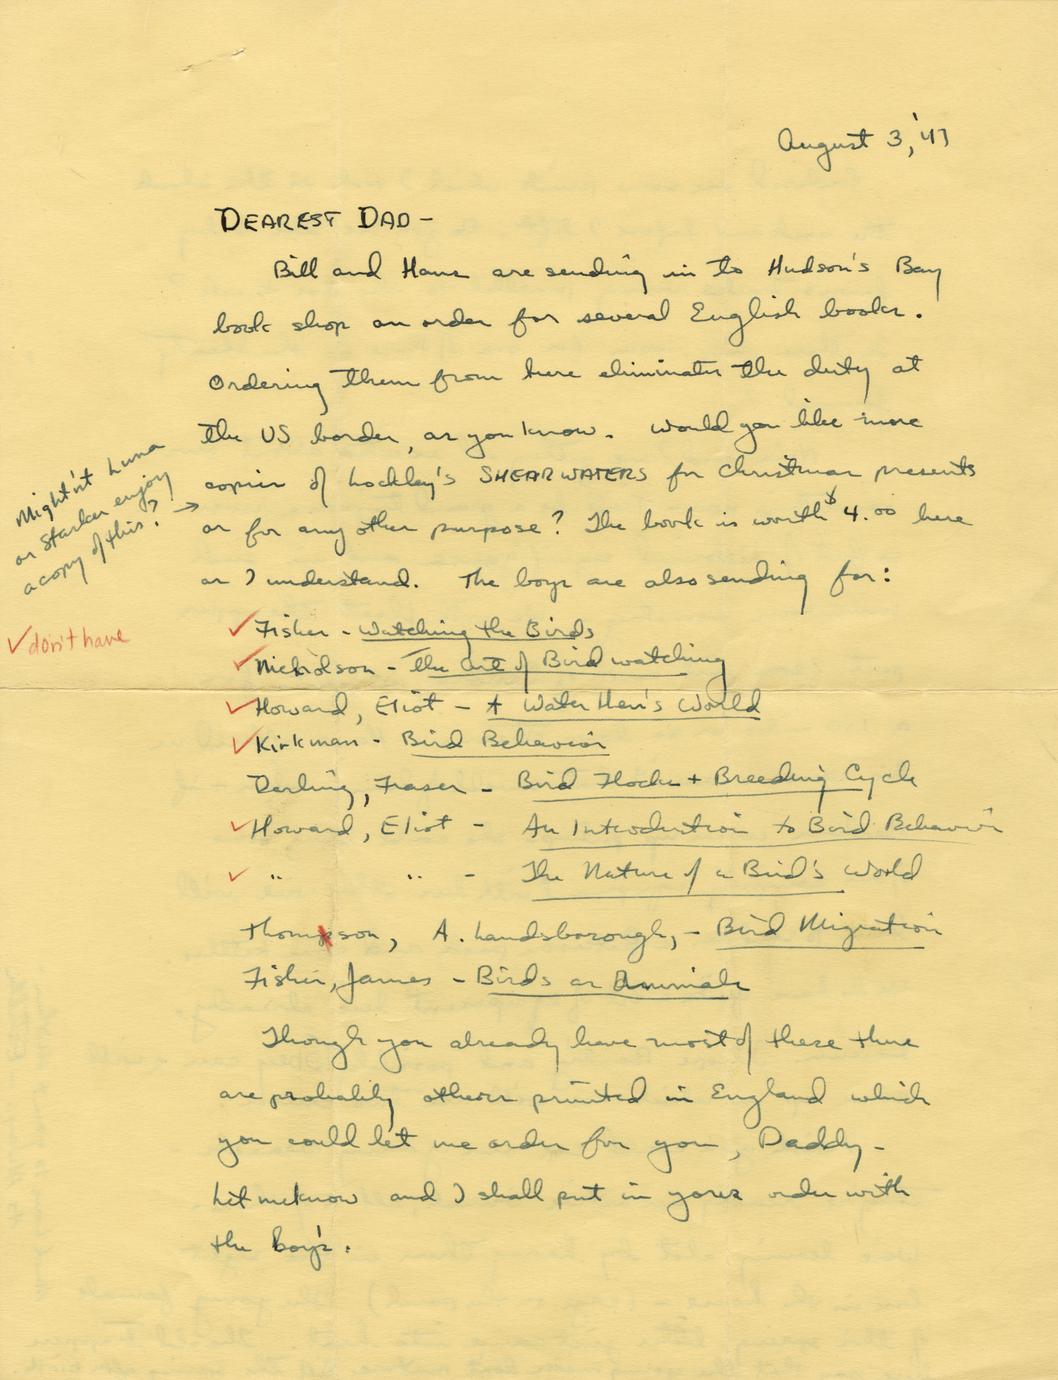 August 3, '47
DEAREST DAD -
Bill and Hans are sending in to Hudson's Bay
book shop an order for several English books.
Ordering them from here eliminates the duty at
the US border, as you know. Would you like more
copies of Lockley's SHEARWATERS for Christmas presents
or for any other purpose? The book is worth $4.00 here
as I understand. The boys are also sending for:
Might'nt Luna
or Starker enjoy
a copy of this? →
✓ don't have
✓ Fisher - Watching the Birds
✓ Nicholson - The Art of Birdwatching
✓ Howard, Eliot - A Water Hen's World
✓ Kirkman - Bird Behavior
Darling, Fraser - Bird Flocks + Breeding Cycle
✓ Howard, Eliot - An Introduction to Bird Behavior
✓ " " - The Nature of a Bird's World
Thomson, A. Landsborough, - Bird Migration
Fisher, James - Birds as Animals
Though you already have most of these there
are probably others printed in England which
you could let me order for you, Daddy -
Let me know and I shall put in yours order with
the boy's.